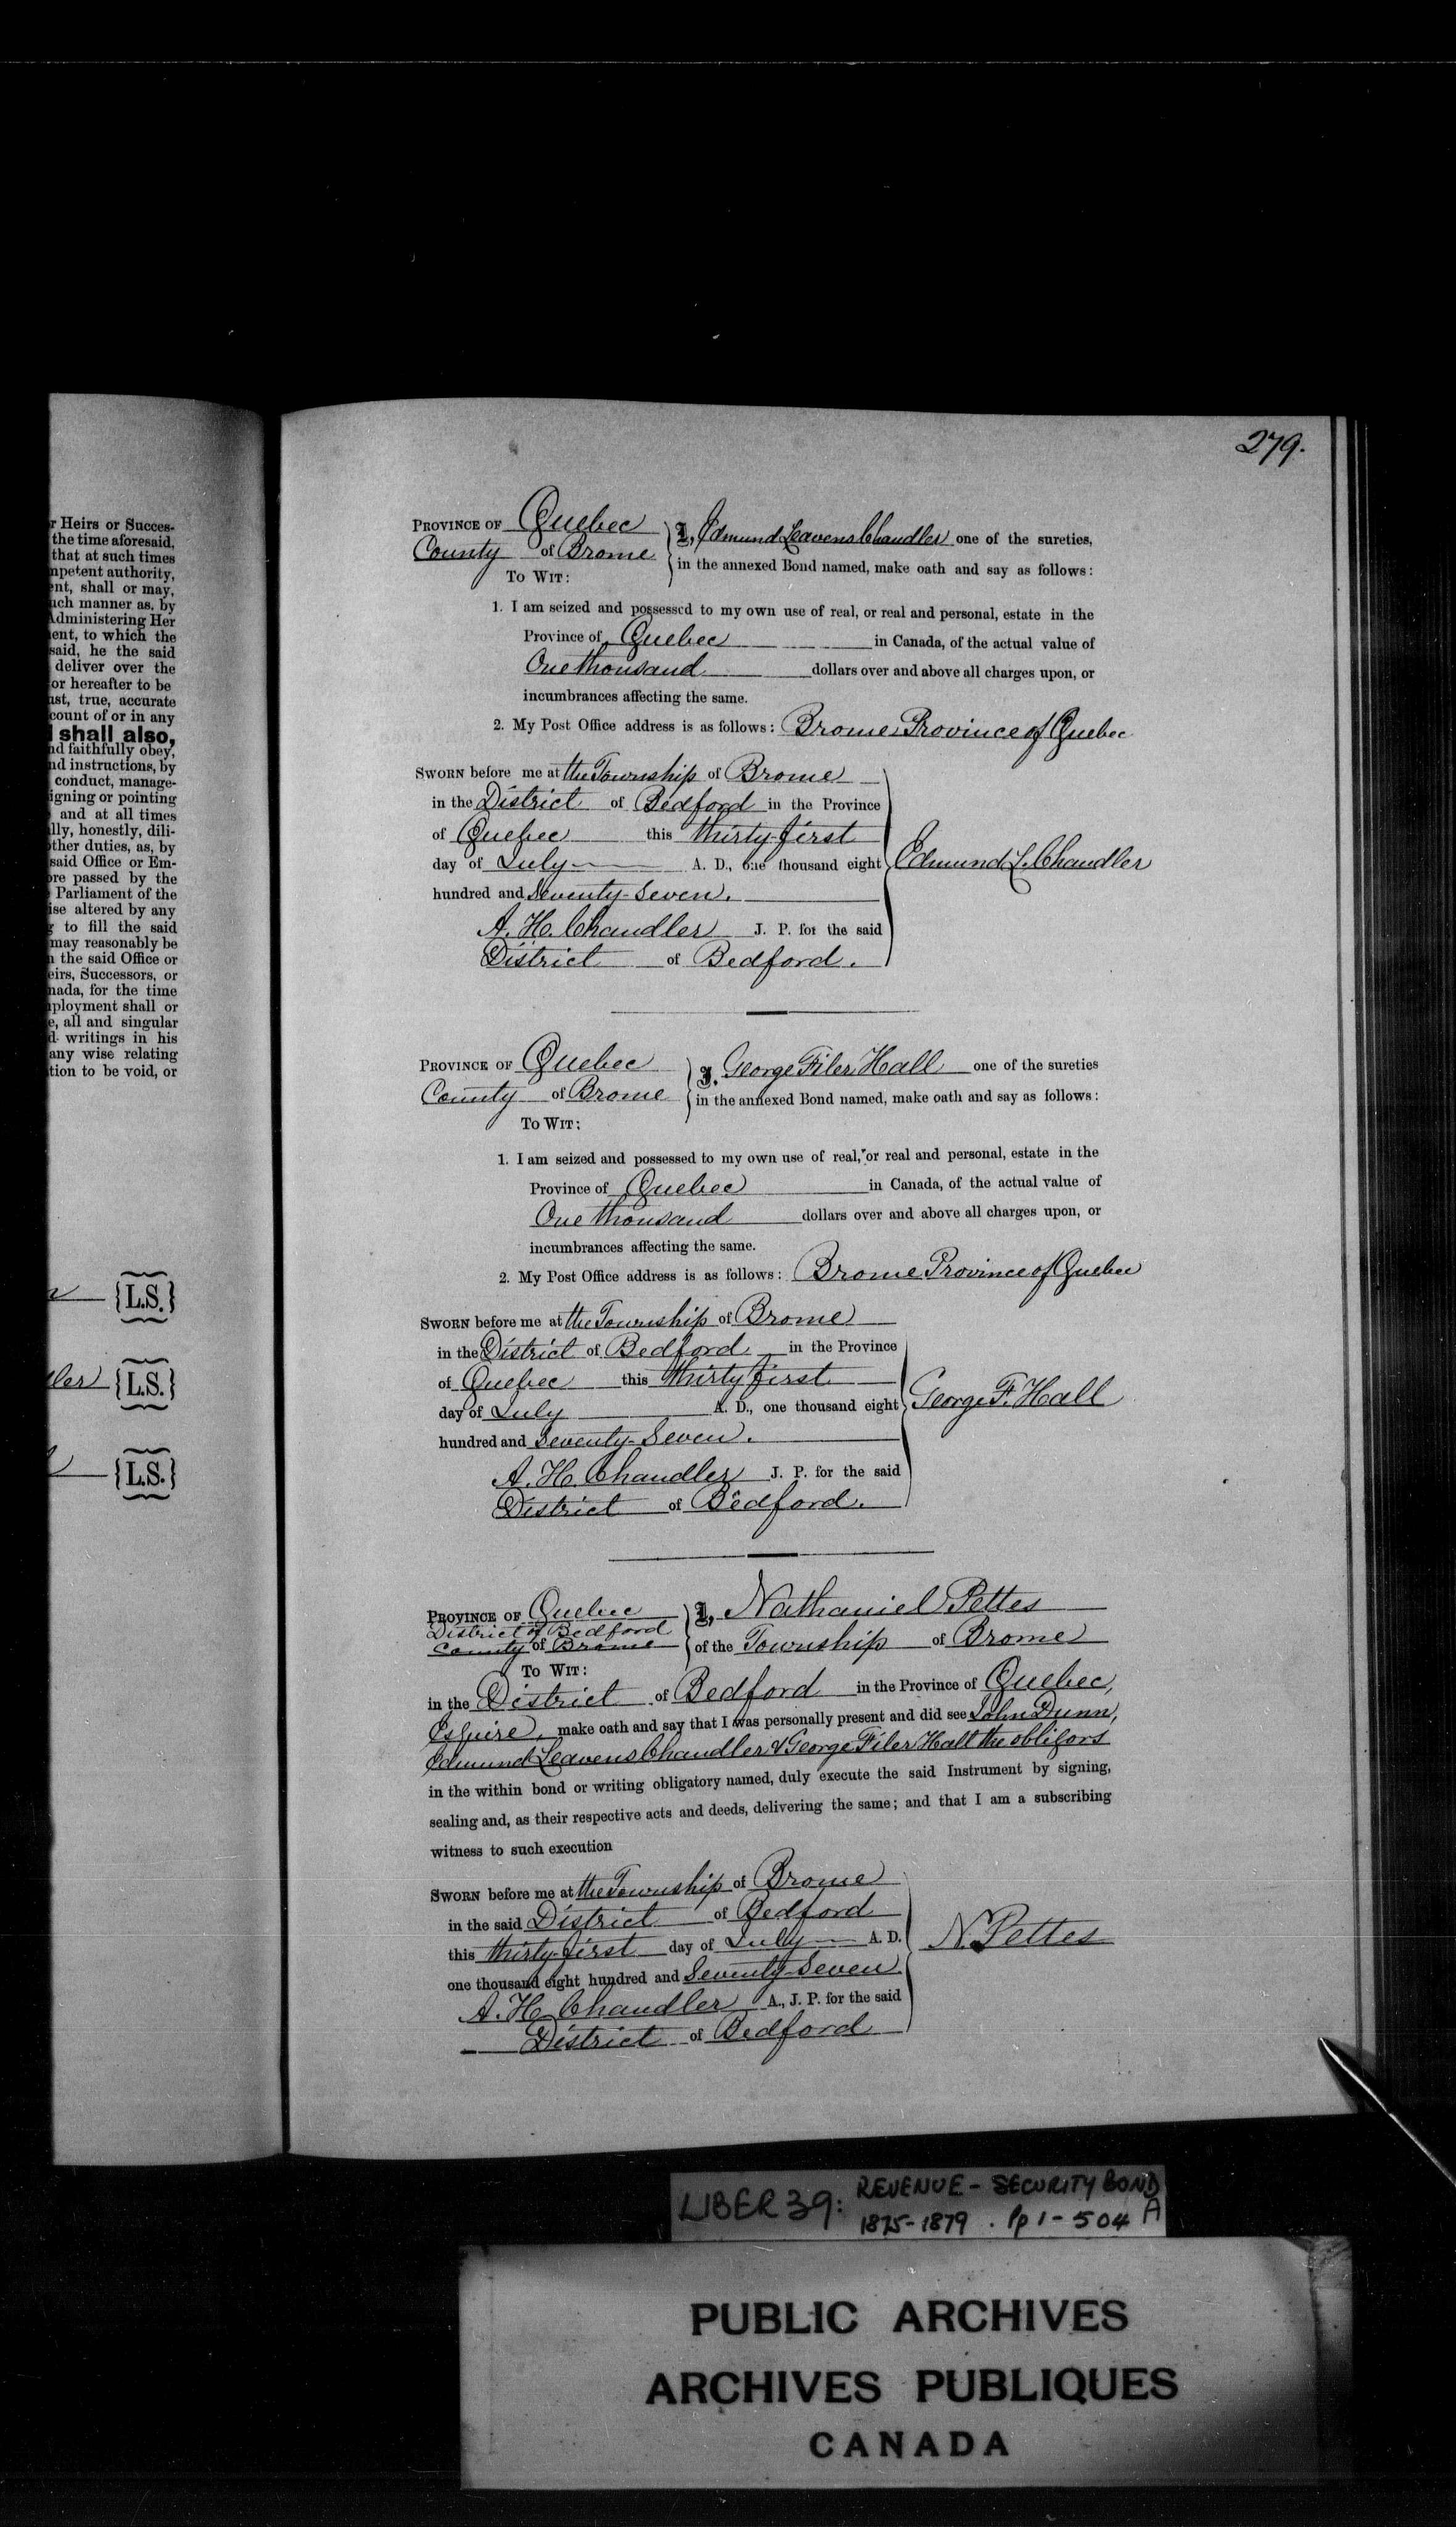 279.
r Heirs or Succes-
the time aforesaid,
that at such times
npetent authority,
ent, shall or may,
uch manner as, by
Administering Her
ent, to which the
said, he the said
deliver over the
or hereafter to be
ust, true, accurate
count of or in any
shall also,
nd faithfully obey,
nd instructions, by
conduct, manage-
igning or pointing
and at all times
lly, honestly, dili-
other duties, as, by
said Office or Em-
ore passed by the
Parliament of the
ise altered by any
to fill the said
may reasonably be
n the said Office or
eirs, Successors, or
nada, for the time
ployment shall or
e, all and singular
d writings in his
any wise relating
tion to be void, or
{L.S.}
ler {L.S.}
{L.S.}
PROVINCE OF Quebec
County of Brome
TO WIT:
I, Edmund Leavens Chandler one of the sureties,
in the annexed Bond named, make oath and say as follows:
1. I am seized and possessed to my own use of real, or real and personal, estate in the
Province of Quebec in Canada, of the actual value of
One thousand dollars over and above all charges upon, or
incumbrances affecting the same.
2. My Post Office address is as follows: Brome Province of Quebec
SWORN before me at the Township of Brome
in the District of Bedford in the Province
of Quebec this thirty-first
day of July A. D., one thousand eight
hundred and Seventy-Seven.
Edmund L. Chandler
A. H. Chandler J. P. for the said
District of Bedford.
PROVINCE OF Quebec
County of Brome
TO WIT:
I, George Filer Hall one of the sureties
in the annexed Bond named, make oath and say as follows:
1. I am seized and possessed to my own use of real, or real and personal, estate in the
Province of Quebec in Canada, of the actual value of
One thousand dollars over and above all charges upon, or
incumbrances affecting the same.
2. My Post Office address is as follows: Brome Province of Quebec
SWORN before me at the Township of Brome
in the District of Bedford in the Province
of Quebec this thirty first
day of July A. D., one thousand eight
hundred and Seventy-Seven.
George F. Hall
A. H. Chandler J. P. for the said
District of Bedford.
PROVINCE OF Quebec
District of Bedford
County of Brome
TO WIT:
I, Nathaniel Pettes
of the Township of Brome
in the District of Bedford in the Province of Quebec,
Esquire, make oath and say that I was personally present and did see John Dunn,
Edmund Leavens Chandler & George Filer Hall the obligors
in the within bond or writing obligatory named, duly execute the said Instrument by signing,
sealing and, as their respective acts and deeds, delivering the same; and that I am a subscribing
witness to such execution
SWORN before me at the Township of Brome
in the said District of Bedford
this thirty-first day of July A. D.
one thousand eight hundred and Seventy-Seven
N. Pettes
A. H. Chandler A., J. P. for the said
District of Bedford
LIBER 39: REVENUE - SECURITY BOND
1875-1879 . Pp 1-504 A
PUBLIC ARCHIVES
ARCHIVES PUBLIQUES
CANADA